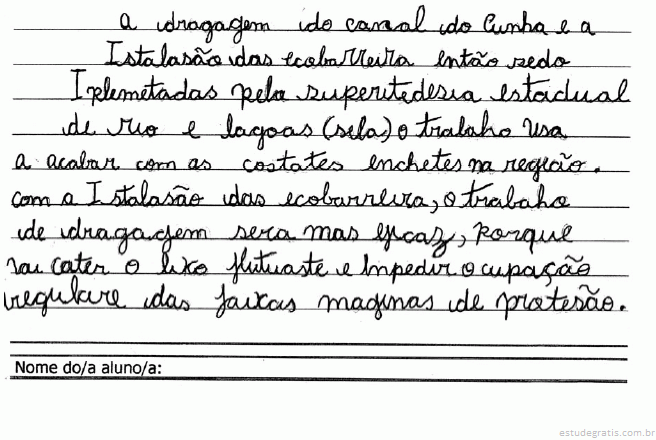 a dragagem do canal do Cunha e a
Istalasão das ecobarreira então sedo
Iplemetadas pela superitedesia estadual
de rio e lagoas (sela) o trabalho usa
a acabar com as costates enchetes na região.
com a Istalasão das ecobarreira, o trabaho
de dragagem sera mas eficaz, porque
vai cater o lixo flutuaste e Impedir ocupação
iregulare das faixas maginas de protesão.
Nome do/a aluno/a:
estudegratis.com.br